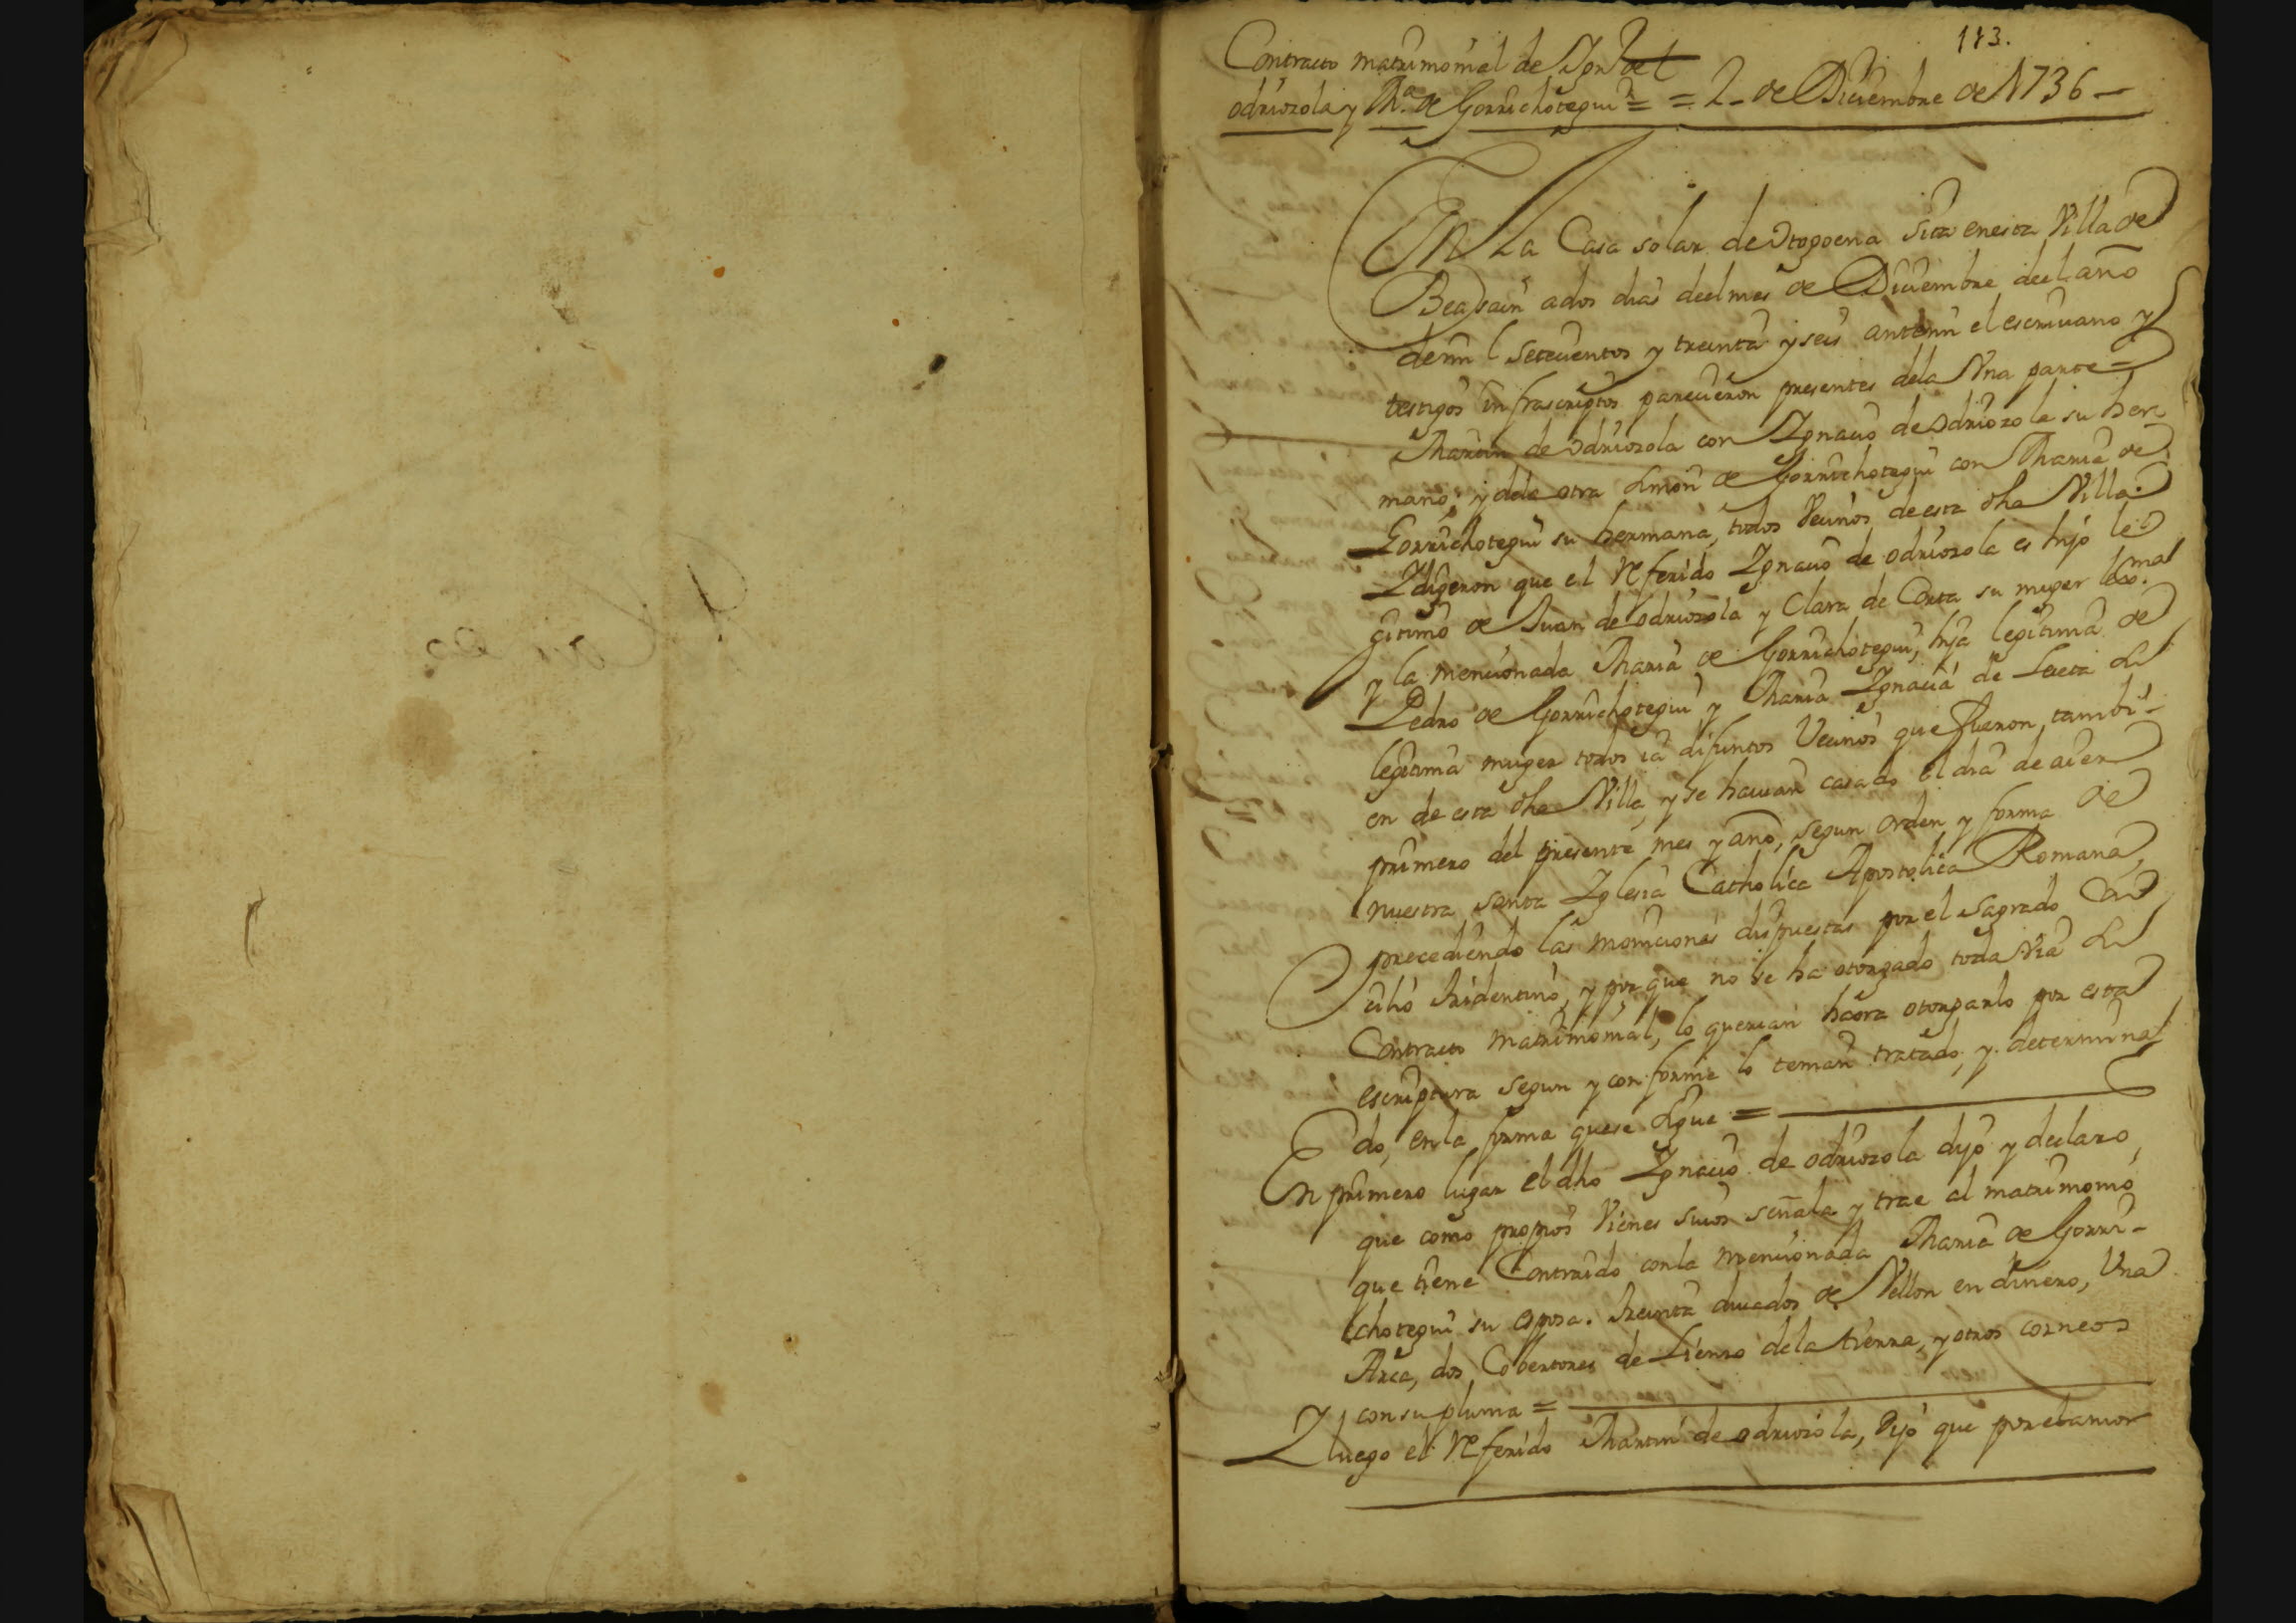 113.
Contracto matrimonial de Ygn.º de
odriozola y M.ª de Gorrichotegui = = 2 de Diciembre de 1736
En La Casa solar de Ytogoena sita en esta Villa de
Beasain a dos dias del mes de Diciembre del año
de mil setecientos y treinta y seis ante mi el escriuano y
testigos infrascriptos parecieron presentes de la Vna parte
Martin de Odriozola con Ygnacio de Odriozola su her
mano; y de la otra Simon de Gorrichotegui con Maria de
Gorrichotegui su hermana, todos Vecinos de esta dha Villa.
Y digeron que el referido Ygnacio de odriozola es hijo le
gitimo de Juan de Odriozola y Clara de Corta su muger lexma.
y la mencionada Maria de Gorrichotegui, hija legitima de
Pedro de Gorrichotegui y Maria Ygnacia de su
legitima muger todos ia difuntos Vecinos que fueron, tambi-
en de esta dha Villa, y se hauian casado el dia de aier
primero del presente mes y año, segun orden y forma de
nuestra santa Yglesia Catholica Apostolica Romana,
precediendo las moniciones dispuestas por el Sagrado Con
cilio tridentino, y por que no se ha otorgado toda Via su
Contracto matrimonial, lo querian haora otorgarlo por esta
escriptura segun y conforme lo tenian tratado, y determina
do, en la forma que se sigue =
En primero lugar el dho Ygnacio de odriozola dijo y declaro,
que como propios Vienes suios señala y trae al matrimonio
que tiene Contraido con la mencionada Maria de Gorri-
chotegui su esposa. treinta ducados de Vellon en dinero, Vna
Arca, dos Cobertores de Lienzo de la tierra, y otros corneos
con su pluma =
Y luego el referido Martin de odriozola, dijo que por el amor